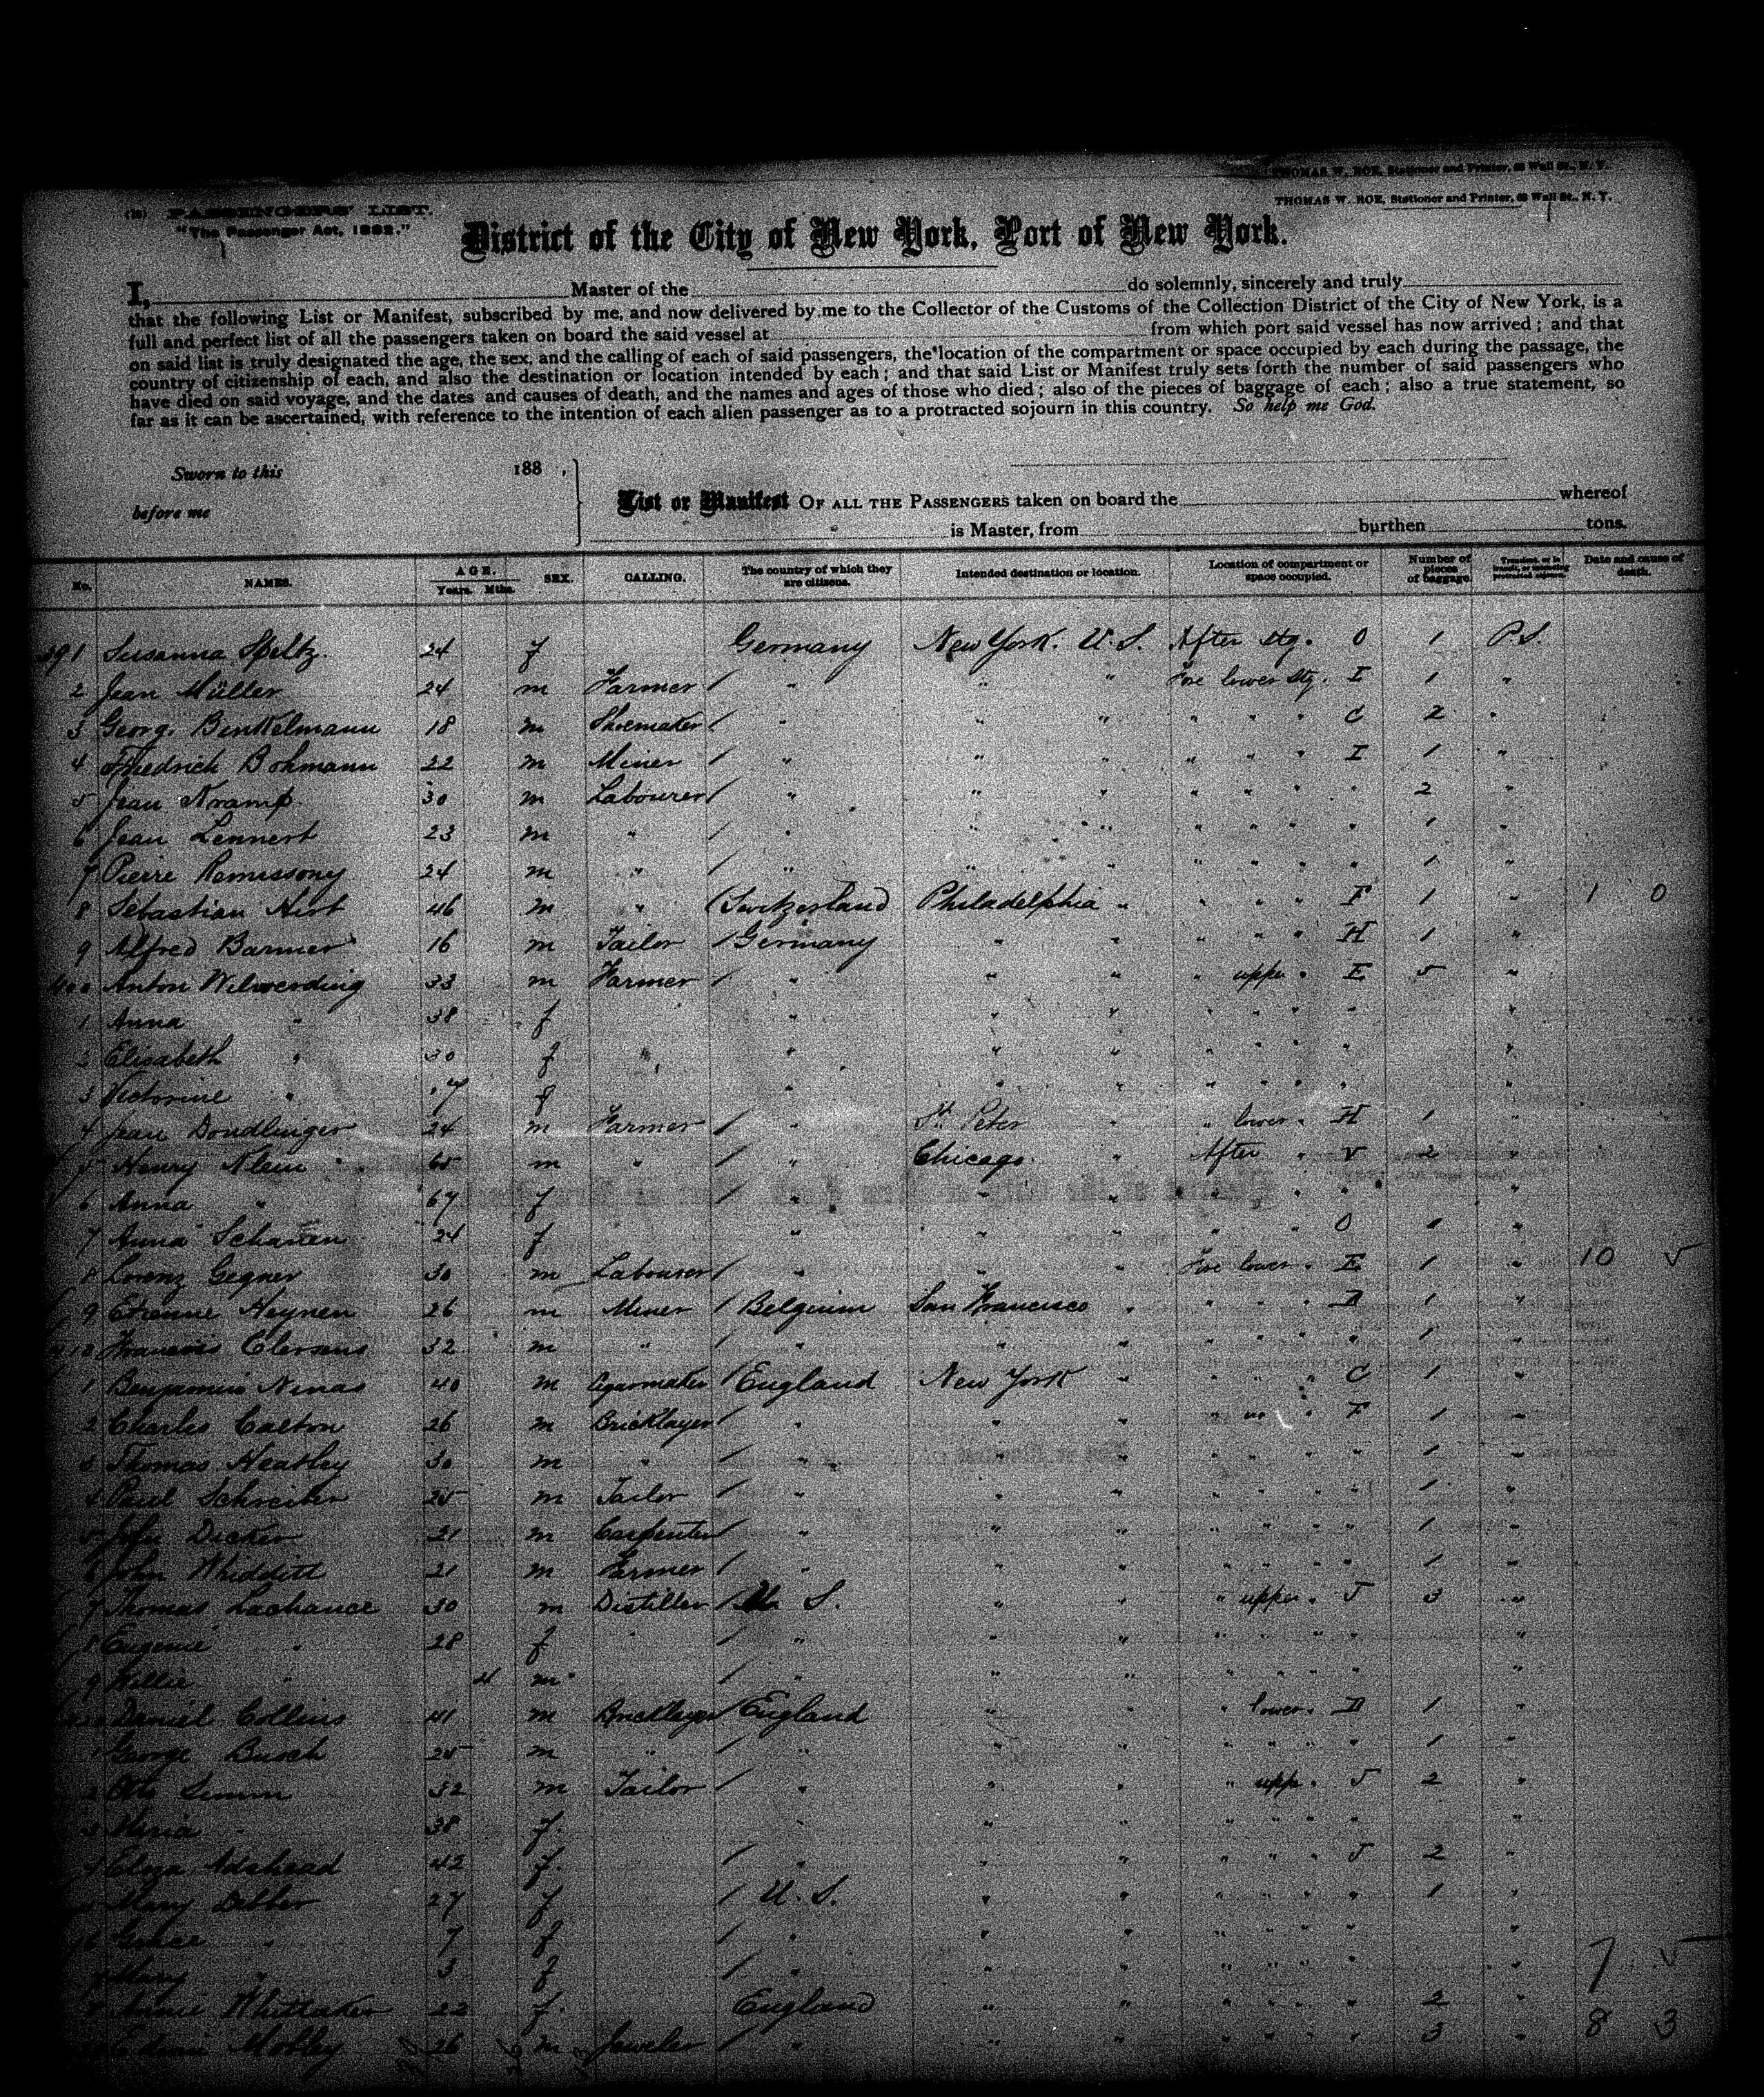 THOMAS W. ROE, Stationer and Printer, 63 Wall St., N. Y.
THOMAS W. ROE, Stationer and Printer, 63 Wall St., N. Y.
PASSENGERS' LIST.
"The Passenger Act, 1882."
District of the City of New York, Port of New York.
I, Master of the do solemnly, sincerely and truly
that the following List or Manifest, subscribed by me, and now delivered by me to the Collector of the Customs of the Collection District of the City of New York, is a
full and perfect list of all the passengers taken on board the said vessel at from which port said vessel has now arrived; and that
on said list is truly designated the age, the sex, and the calling of each of said passengers, the location of the compartment or space occupied by each during the passage, the
country of citizenship of each, and also the destination or location intended by each; and that said List or Manifest truly sets forth the number of said passengers who
have died on said voyage, and the dates and causes of death, and the names and ages of those who died; also of the pieces of baggage of each; also a true statement, so
far as it can be ascertained, with reference to the intention of each alien passenger as to a protracted sojourn in this country. So help me God.
Sworn to this 188 ,
before me
List or Manifest OF ALL THE PASSENGERS taken on board the whereof
is Master, from burthen tons.
No. NAMES. AGE. Years. Mths. SEX. CALLING. The country of which they are citizens. Intended destination or location. Location of compartment or space occupied. Number of pieces of baggage. Date and cause of death.
391 Susanna Speltz. 24 f Germany New York. U. S. After Stg. O 1 P S.
2 Jean Müller 24 m Farmer / " " " Fore lower Stg. I 1 "
3 Georg. Benkelmann 18 m Shoemaker / " " " " " " C 2 "
4 Friedrich Bohmann 22 m Miner / " " " " " " I 1 "
5 Jean Kramp 30 m Labourer / " " " " " " " 2 "
6 Jean Lennert 23 m " / " " " " " " " 1 "
7 Pierre Remissony 24 m " / " " " " " " " 1 "
8 Sebastian Hirt 46 m " / Switzerland Philadelphia " " " " F 1 " 1 0
9 Alfred Barmer 16 m Tailor / Germany " " " " " H 1 "
400 Anton Wilwerding 33 m Farmer / " " " " upper " E 5 "
1 Anna " 38 f " " " " " " " "
2 Elisabeth " 30 f " " " " " " " "
3 Victorine " f " " " " " " " "
4 Jean Dondlinger 24 m Farmer / " St. Peter " " lower " H 1 "
5 Henry Klein 65 m " / " Chicago. " After " V 2 "
6 Anna " 67 f / " " " " " " "
7 Anna Schanen 24 f " " " " " O 1 "
8 Lorenz Gegner 30 m Labourer / " " " Fore lower " E 1 " 10 5
9 Etienne Heynen 26 m Miner / Belgium San Francisco " " " " D 1 "
410 Francois Clersens 32 m " / " " " " " " " 1 "
1 Benjamin Ninas 40 m Cigarmaker / England New York " " " " C 1 "
2 Charles Calton 26 m Bricklayer / " " " " " " F 1 "
3 Thomas Heatley 30 m " / " " " " " " " 1 "
4 Paul Schreiber 25 m Tailor / " " " " " " " 1 "
5 John Dicker 21 m Carpenter / " " " " " " " 1 "
6 John Whidditt 21 m Farmer / " " " " " " " 1 "
7 Thomas Lachance 30 m Distiller / U. S. " " " upper " J 3 "
8 Eugenie " 28 f " / " " " " " " " "
9 Willie " 4 m / " " " " " " " "
Daniel Collins 41 m Bricklayer / England " " " lower " D 1 "
1 George Busch 25 m " / " " " " " " " 1 "
2 Otto Simm 32 m Tailor / " " " " upp. J 2 "
3 Maria " 38 f " " " " " " " "
4 Eliza Adshead 42 f. / " " " " " " J 2 "
Mary Debber 27 f / U. S. " " " " " " 1 "
6 Grace " 7 f / " " " " " " " "
Mary " 3 f / " " " " " " " " 7 5
Annie Whittaker 22 f. England " " " " " " 2 "
Mobley 26 m Jeweler / " " " " " " " 3 " 8 3